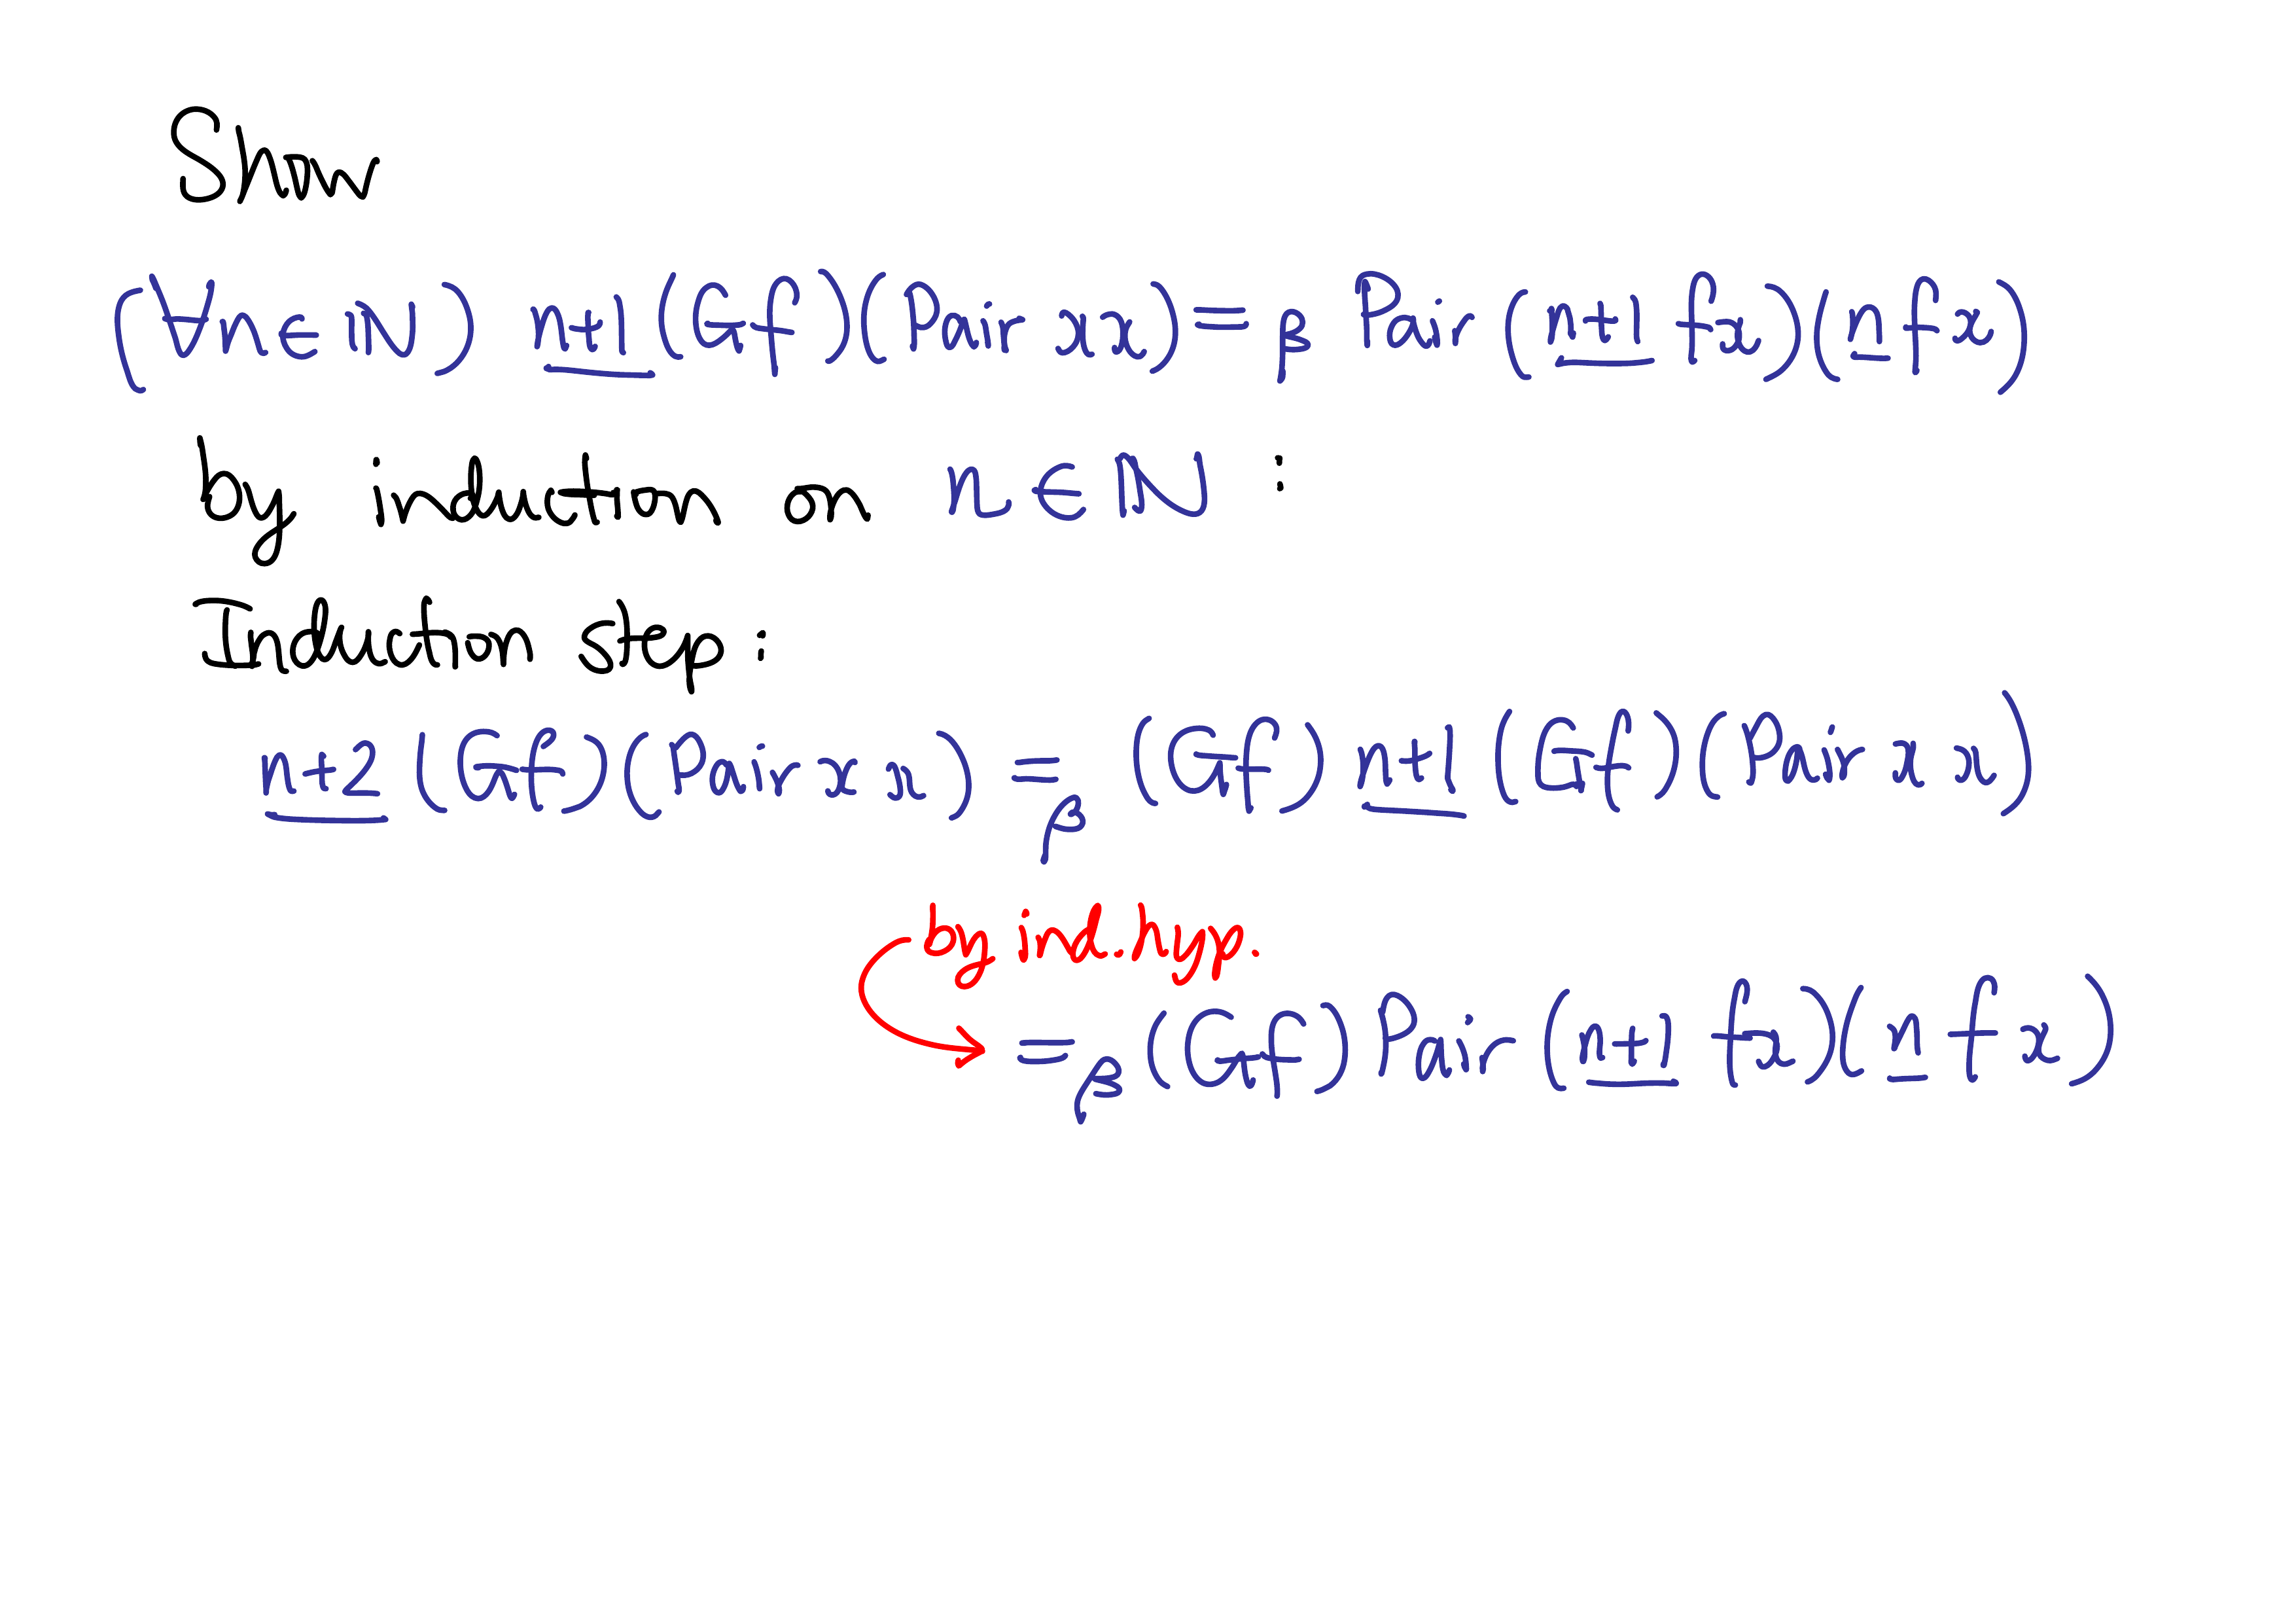 Show
(∀n∈ℕ) n+1 (G f)(Pair x x) =β Pair (n+1 f x)(n f x)
by induction on n ∈ ℕ :
Induction step:
n+2 (G f)(Pair x x) =β (G f) n+1 (G f)(Pair x x)
by ind. hyp.
=β (G f) Pair (n+1 f x)(n f x)